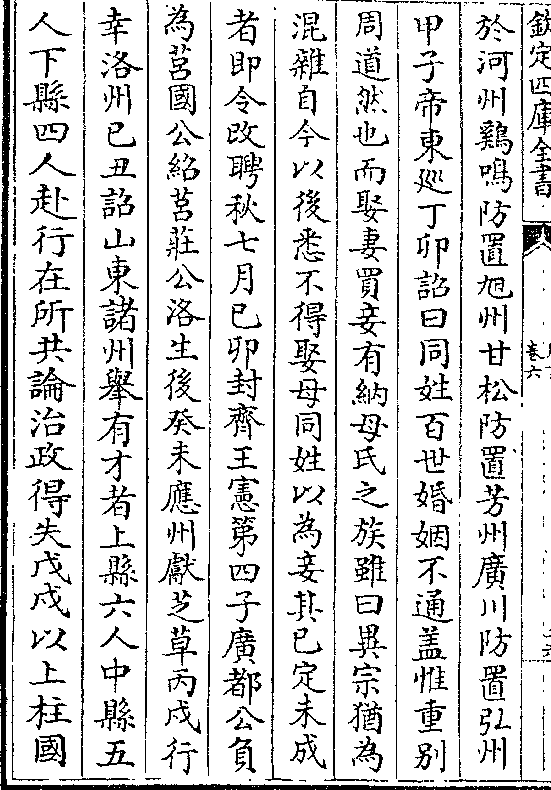 欽定四庫全書
卷六
於河州鷄鳴防置旭州甘松防置芳州廣川防置弘州
甲子帝東廵丁卯詔曰同姓百世婚姻不通盖惟重别
周道然也而娶妻買妾有納母氏之族雖曰異宗猶為
混雜自今以後悉不得娶母同姓以為妾其已定未成
者即令改聘秋七月己卯封齊王憲第四子廣都公負
為莒國公紹莒莊公洛生後癸未應州獻芝草丙戌行
幸洛州己丑詔山東諸州舉有才者上縣六人中縣五
人下縣四人赴行在所共論治政得失戊戌以上柱國